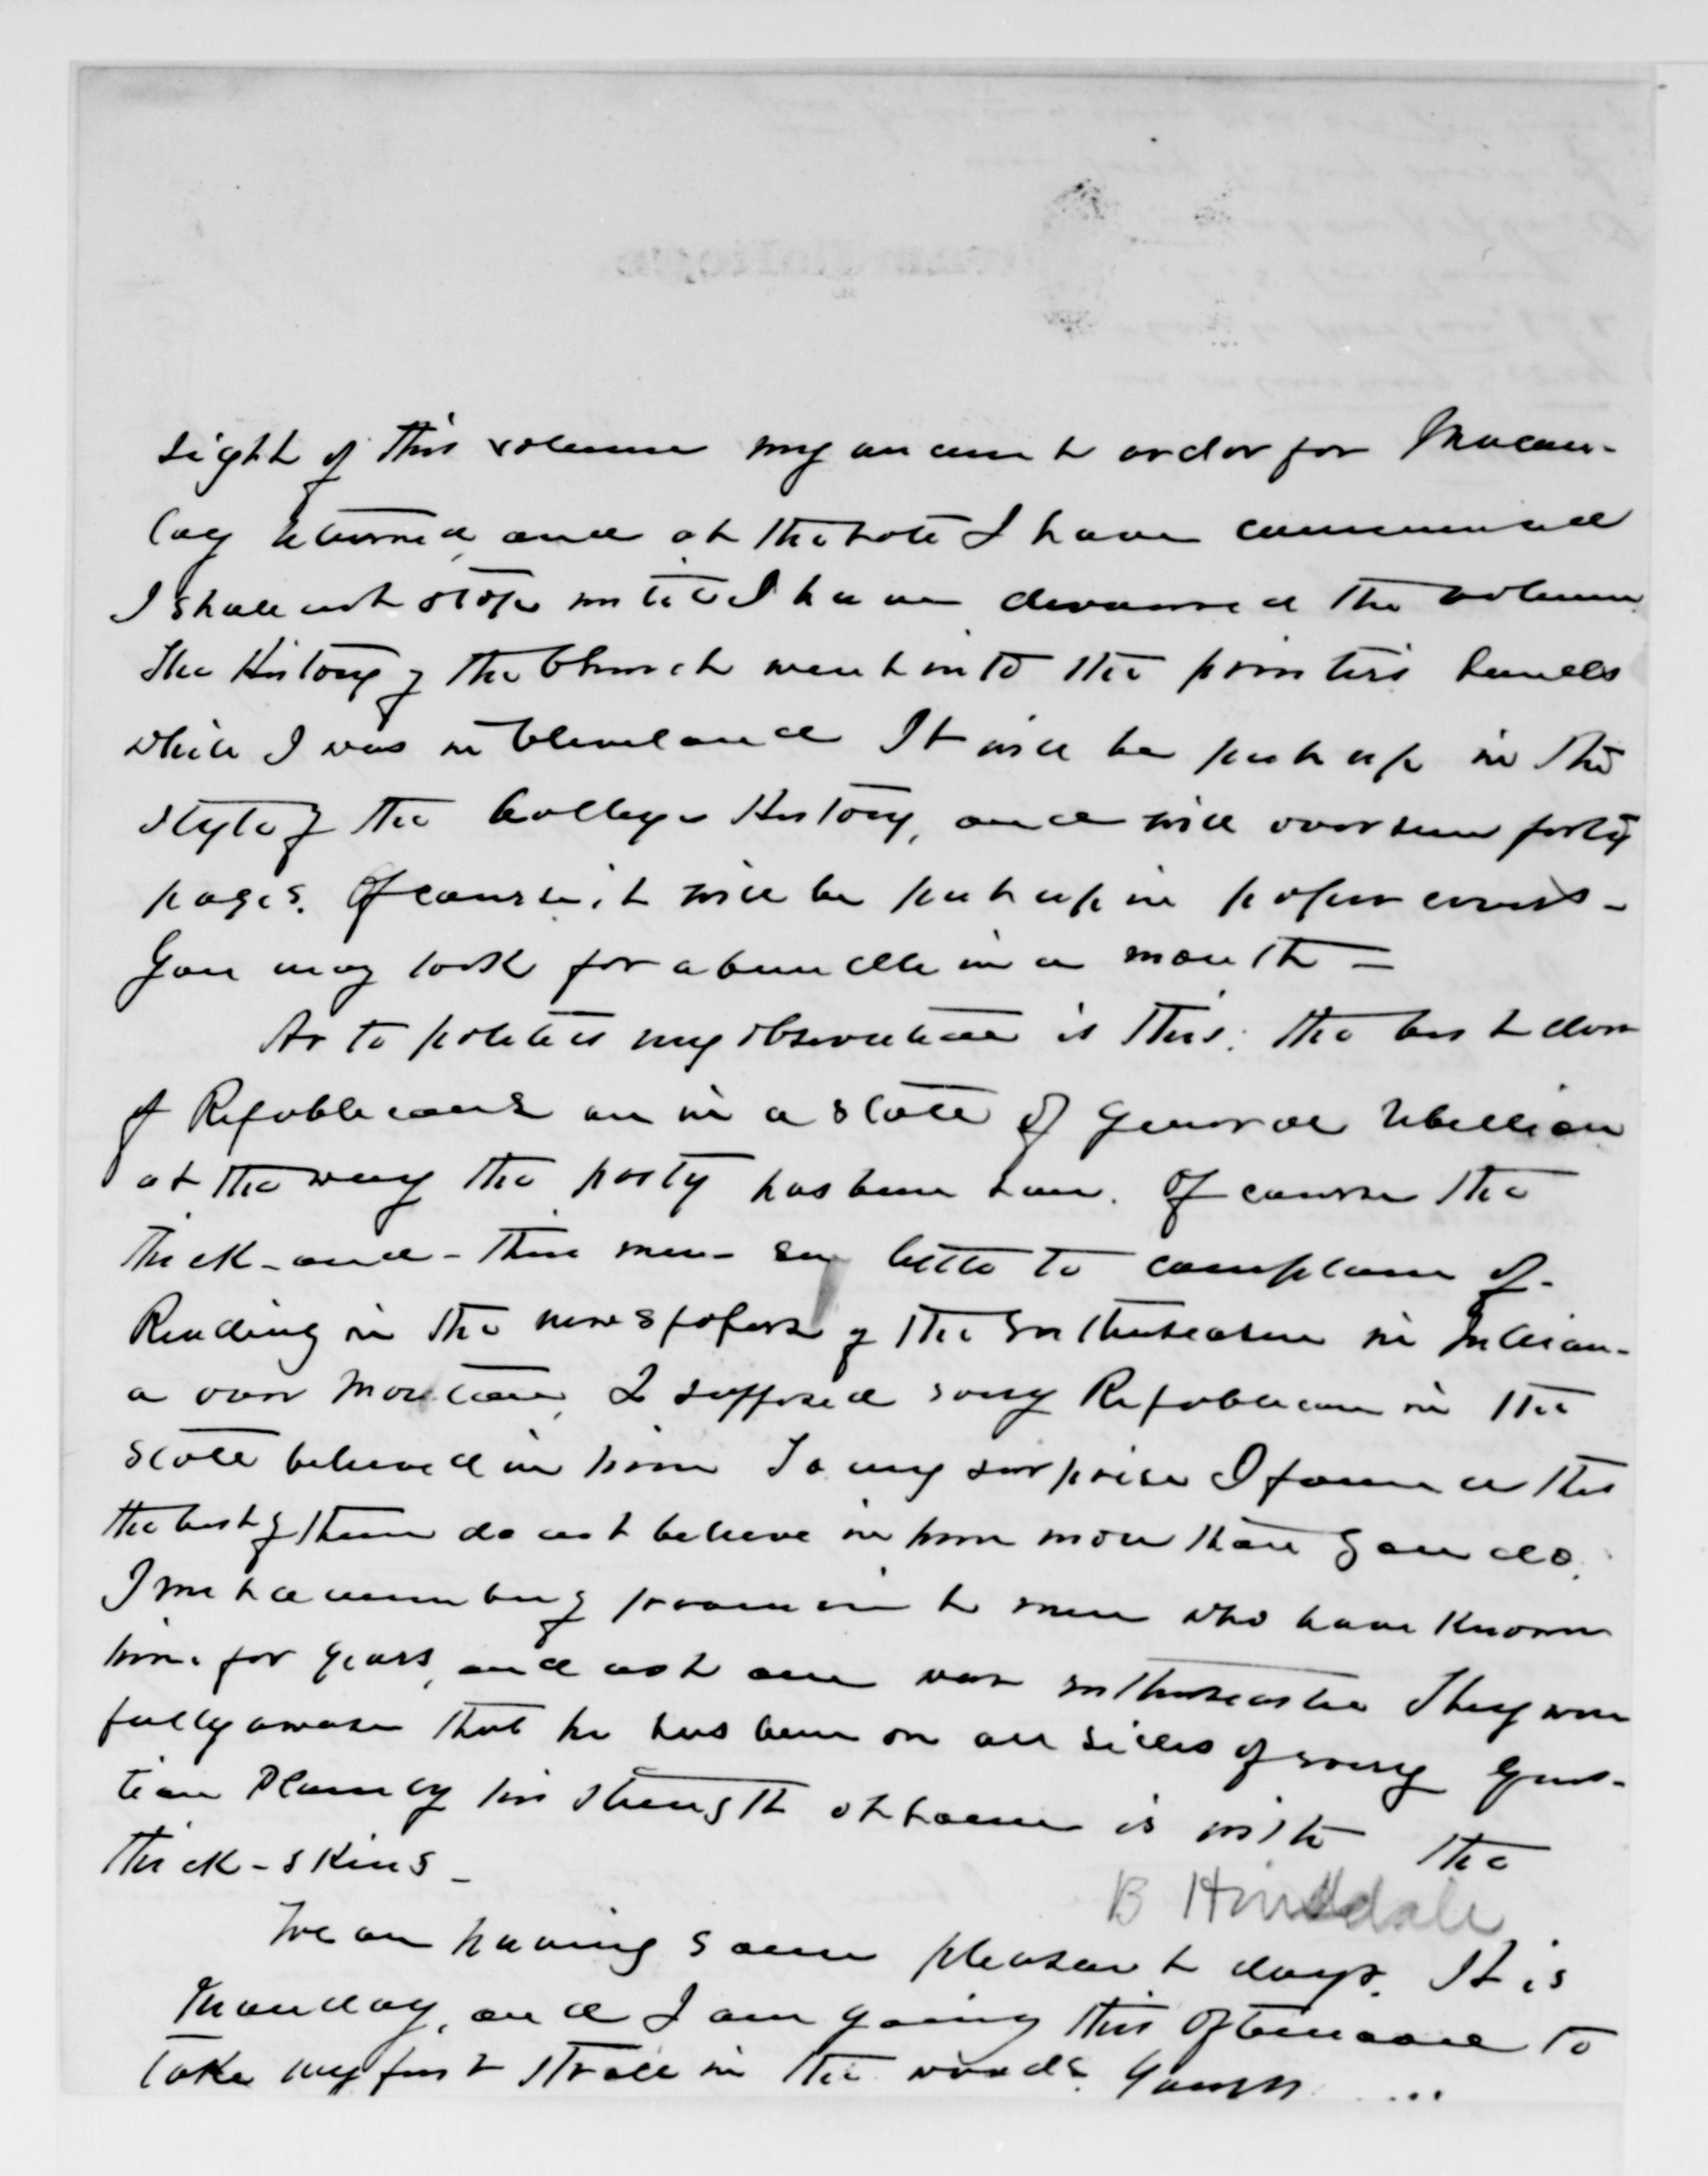 sight of this volume my ancient ardor for Macau-
lay returned, and at the rate I have commenced
I shall not stop until I have devoured the volume.
The History of the Church went into the printer's hands
while I was in Cleveland It will be put up in the
style of the College History, and will overrun forty
pages. Of course it will be put up in paper covers -
You may look for a bundle in a month -
As to politics my observation is this: the best class
of Republicans are in a state of general rebellion
at the way the party has been run. Of course the
thick-and-thin men see little to complain of.
Reading in the newspapers of the enthusiasm in Indian-
a over Morton, I supposed every Republican in the
State believed in him To my surprise I found that
the best of them do not believe in him more than you do.
I met a number of prominent men who have known
him for years, and not one was enthusiastic They were
fully aware that he has been on all sides of every ques-
tion Plainly his strength at home is with the
thick-skins -
B Hinsdale
We are having some pleasant days. It is
Monday, and I am going this afternoon to
take my first stroll in the woods. Yours ...